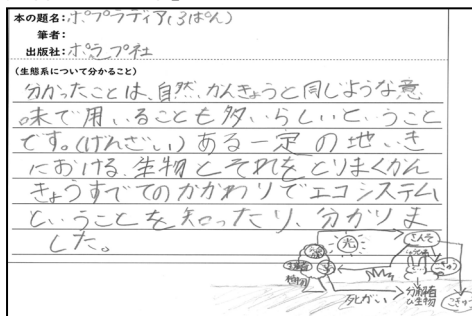 本の題名:ポプラディア(3ぱん)
筆者:
出版社:ポプラ社
(生態系について分かること)
分かったことは、自然、かんきょうと同じような意
味で用いることも多いらしいということ
です。(げんざい)ある一定の地いき
における、生物とそれをとりまくかん
きょうすべてのかかわりでエコシステム
ということを知ったり、分かりま
した。
光
生産者
植物
死がい
分解者
び生物